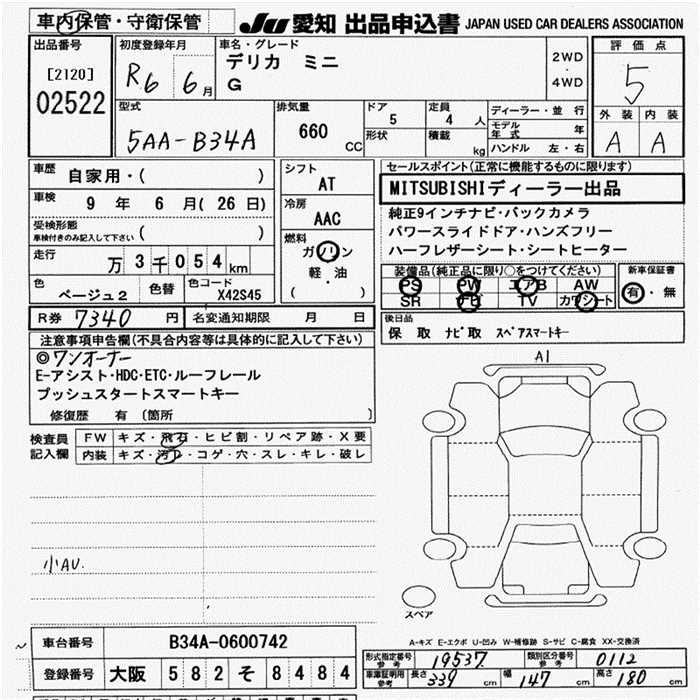 車内保管・守衛保管
JU 愛知 出品申込書 JAPAN USED CAR DEALERS ASSOCIATION
出品番号
[2120]
02522
初度登録年月
R6 6月
車名・グレード
デリカ ミニ
G
2WD
・
4WD
評価点
5
外装 内装
A A
型式
5AA-B34A
排気量
660 CC
ドア
5
定員
4 人
形状
積載
kg
ディーラー・並行
モデル年式 年
ハンドル 左・右
車歴
自家用・( )
車検 9 年 6 月( 26 日)
受検形態
車検付きのみ記入して下さい ( )
走行
万 3 千 0 5 4 km
色
ベージュ2
色替
色コード
X42S45
シフト
AT
冷房
AAC
燃料
ガソリン
軽・油
( )
セールスポイント(正常に機能するものに限ります)
MITSUBISHIディーラー出品
純正9インチナビ・バックカメラ
パワースライドドア・ハンズフリー
ハーフレザーシート・シートヒーター
装備品(純正品に限り○をつけてください)
PS PW エアB AW
SR ナビ TV カワシート
新車保証書
有・無
R券 7340 円 名変通知期限 月 日
後日品
保 取 ナビ取 スペアスマートキー
注意事項申告欄(不具合内容等は具体的に記入して下さい)
◎ワンオーナー
E-アシスト・HDC・ETC・ルーフレール
プッシュスタートスマートキー
修復歴 有 〔箇所 〕
検査員
記入欄
FW キズ・飛石・ヒビ割・リペア跡・X要
内装 キズ・汚レ・コゲ・穴・スレ・キレ・破レ
小AU.
A1
スペア
A-キズ E-エクボ U-凹み W-補修跡 S-サビ C-腐食 XX-交換済
車台番号 B34A-0600742
登録番号 大阪 5 8 2 そ 8 4 8 4
形式指定番号
参考
19537
類別区分番号
参考
0112
車庫証明用
参考
長さ 339 cm 幅 147 cm 高さ 180 cm